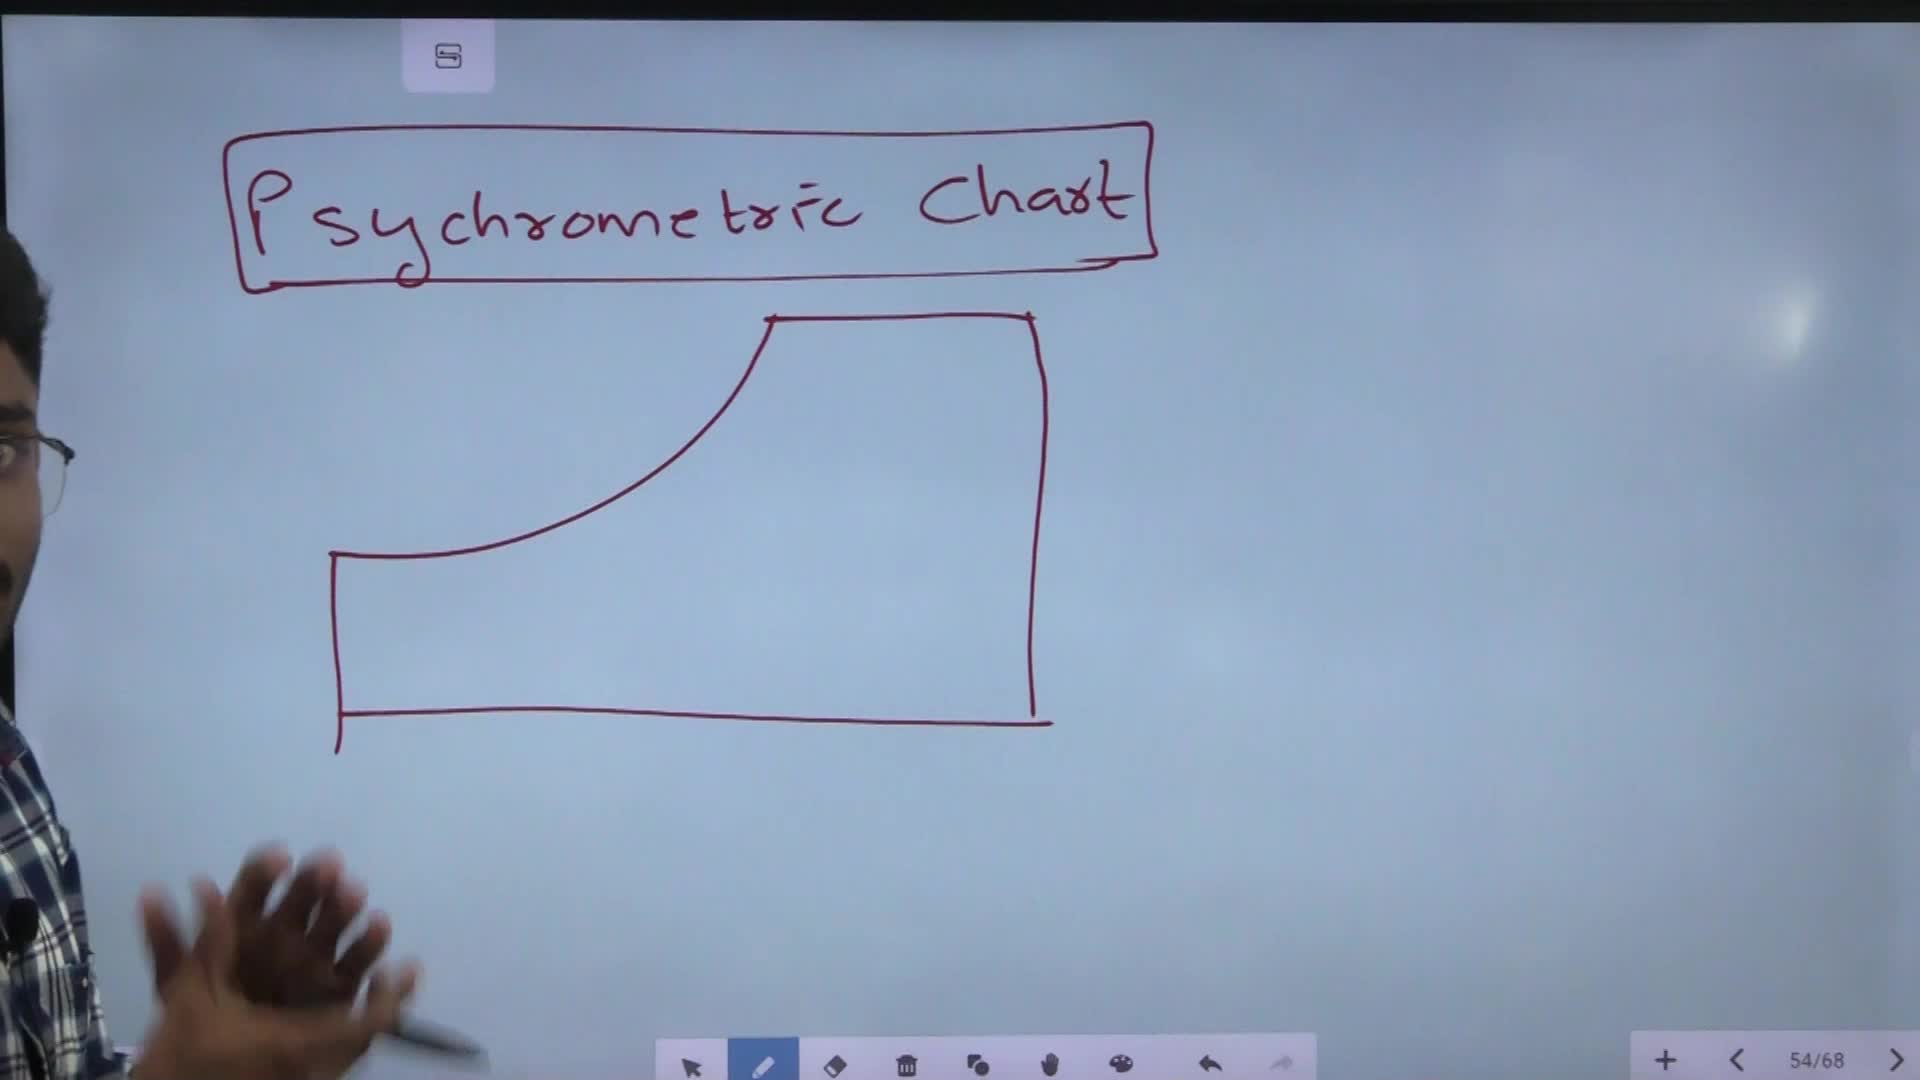 Psychrometric Chart
54/68